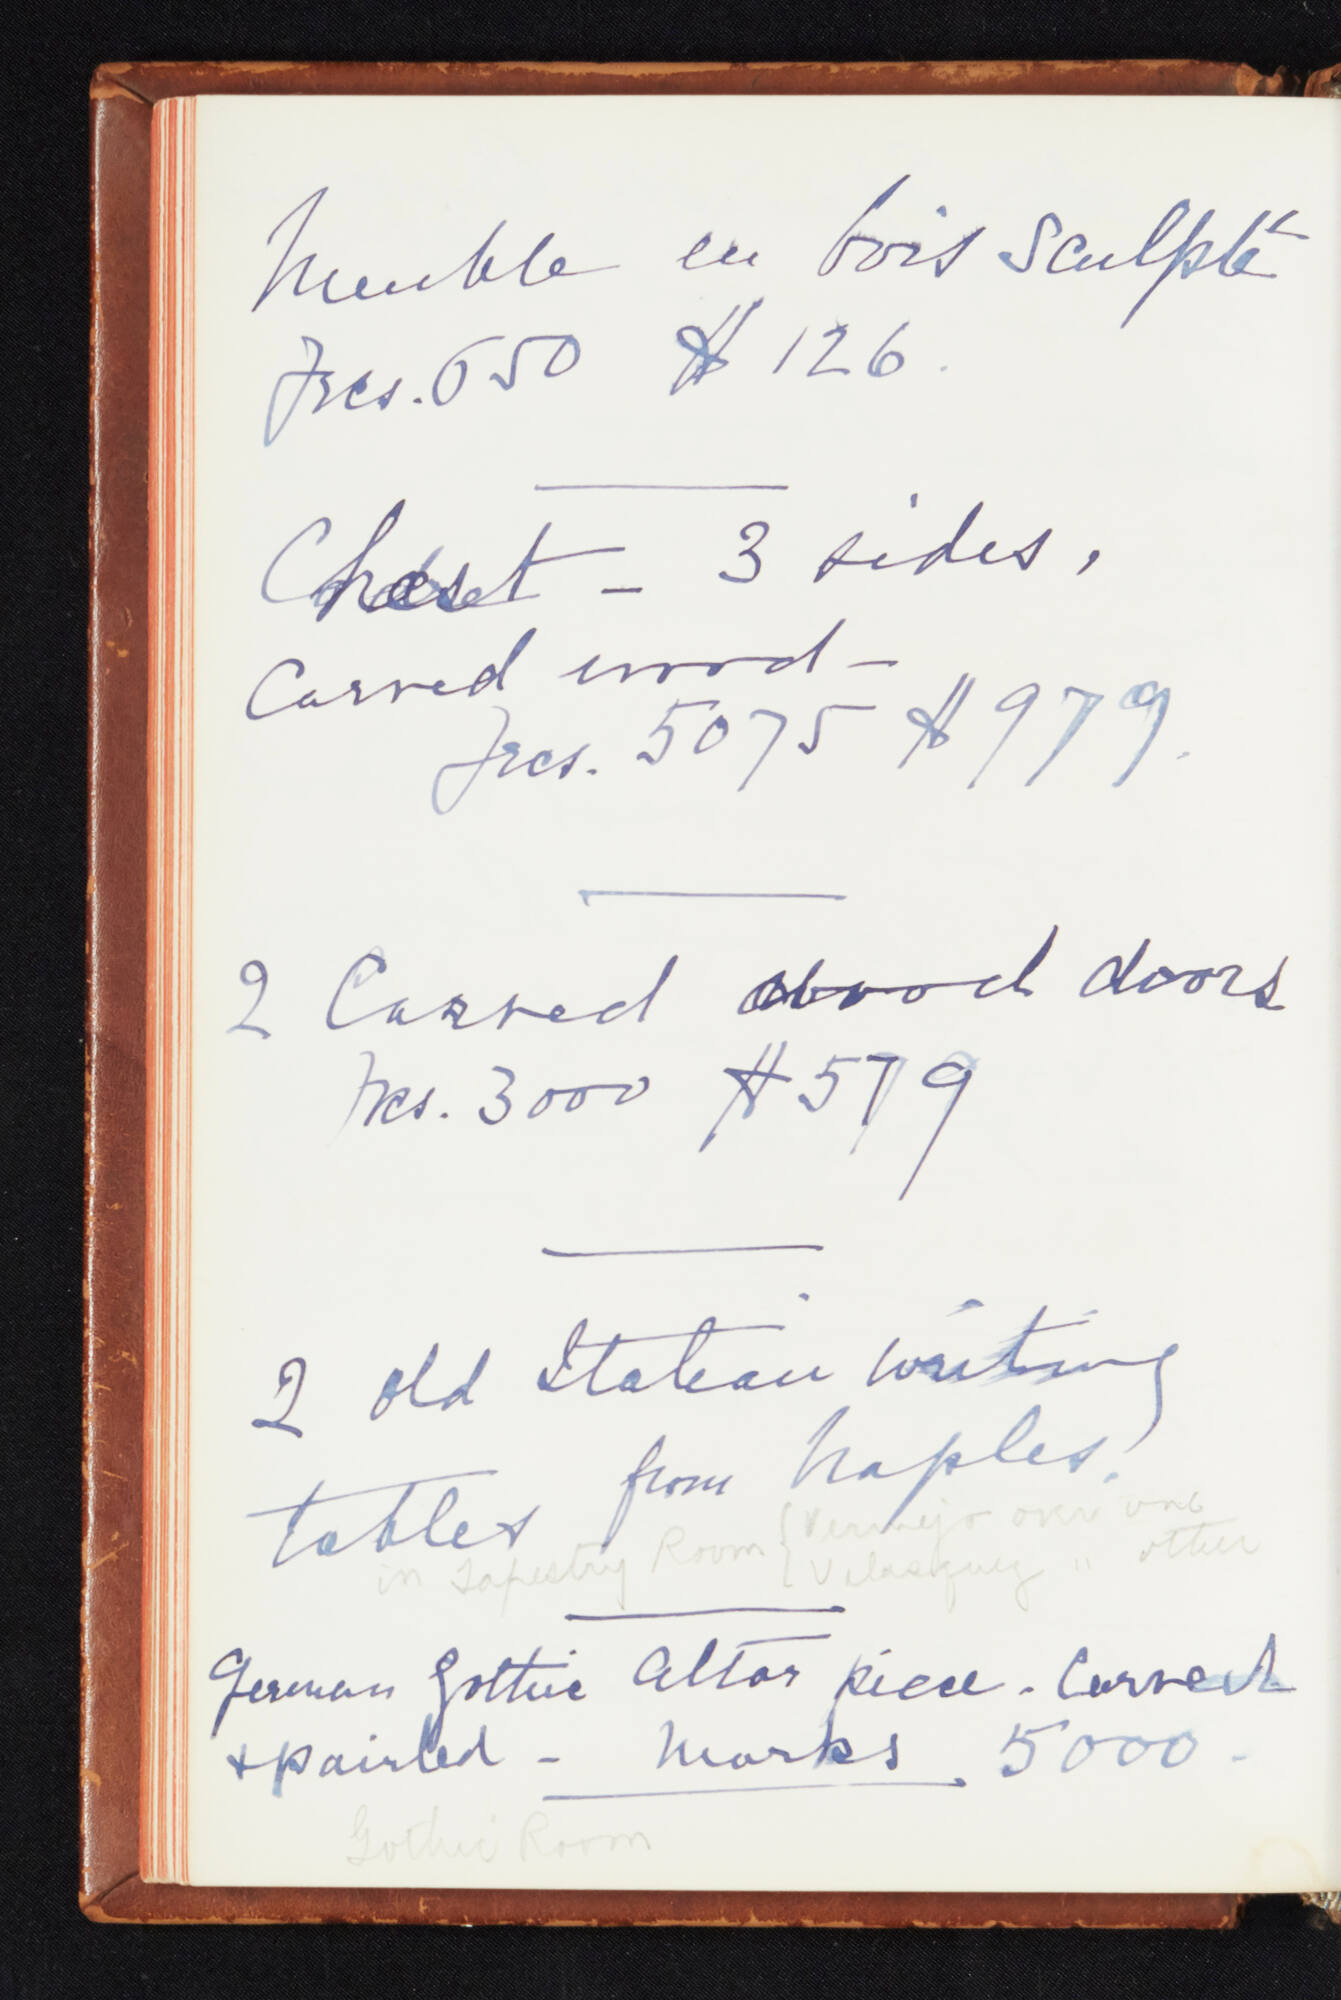 Meuble en bois sculpté
Frcs. 650 $ 126.
Chest - 3 sides,
Carved wood -
Frcs. 5075 $ 979.
2 Carved wood doors
Frcs. 3000 $ 579
2 old Italian writing
tables from Naples.
in Tapestry Room { Vermejo over one
Velasquez " other
German Gothic Altar piece. Carved
+ painted - Marks 5000.
Gothic Room